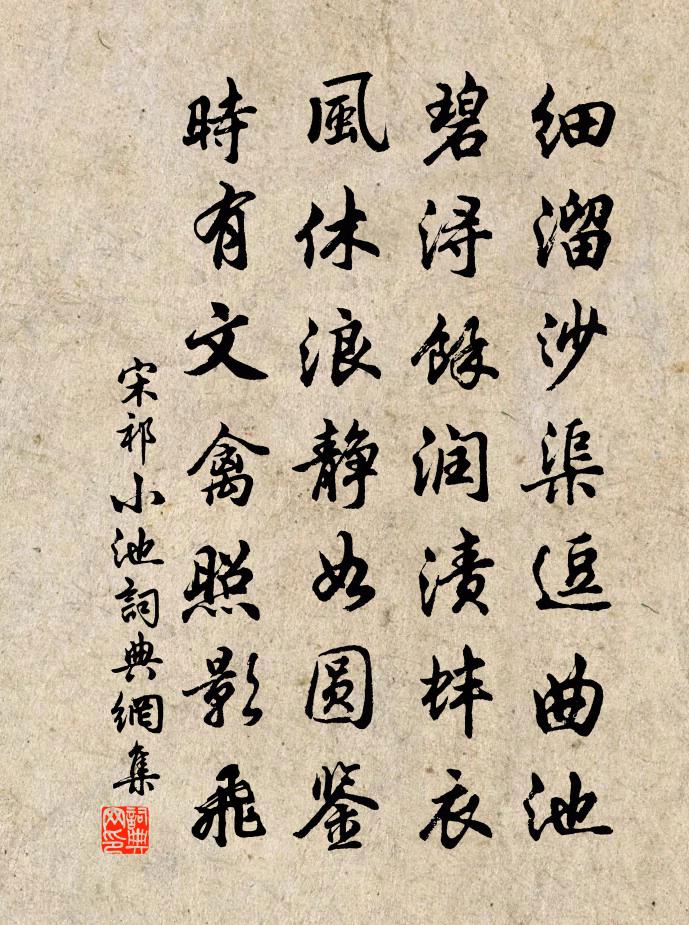 细溜沙渠逗曲池
碧浔餘润渍蚌衣
風休浪静如圆鉴
時有文禽照影飛
宋祁小池詞典網集
詞典网印